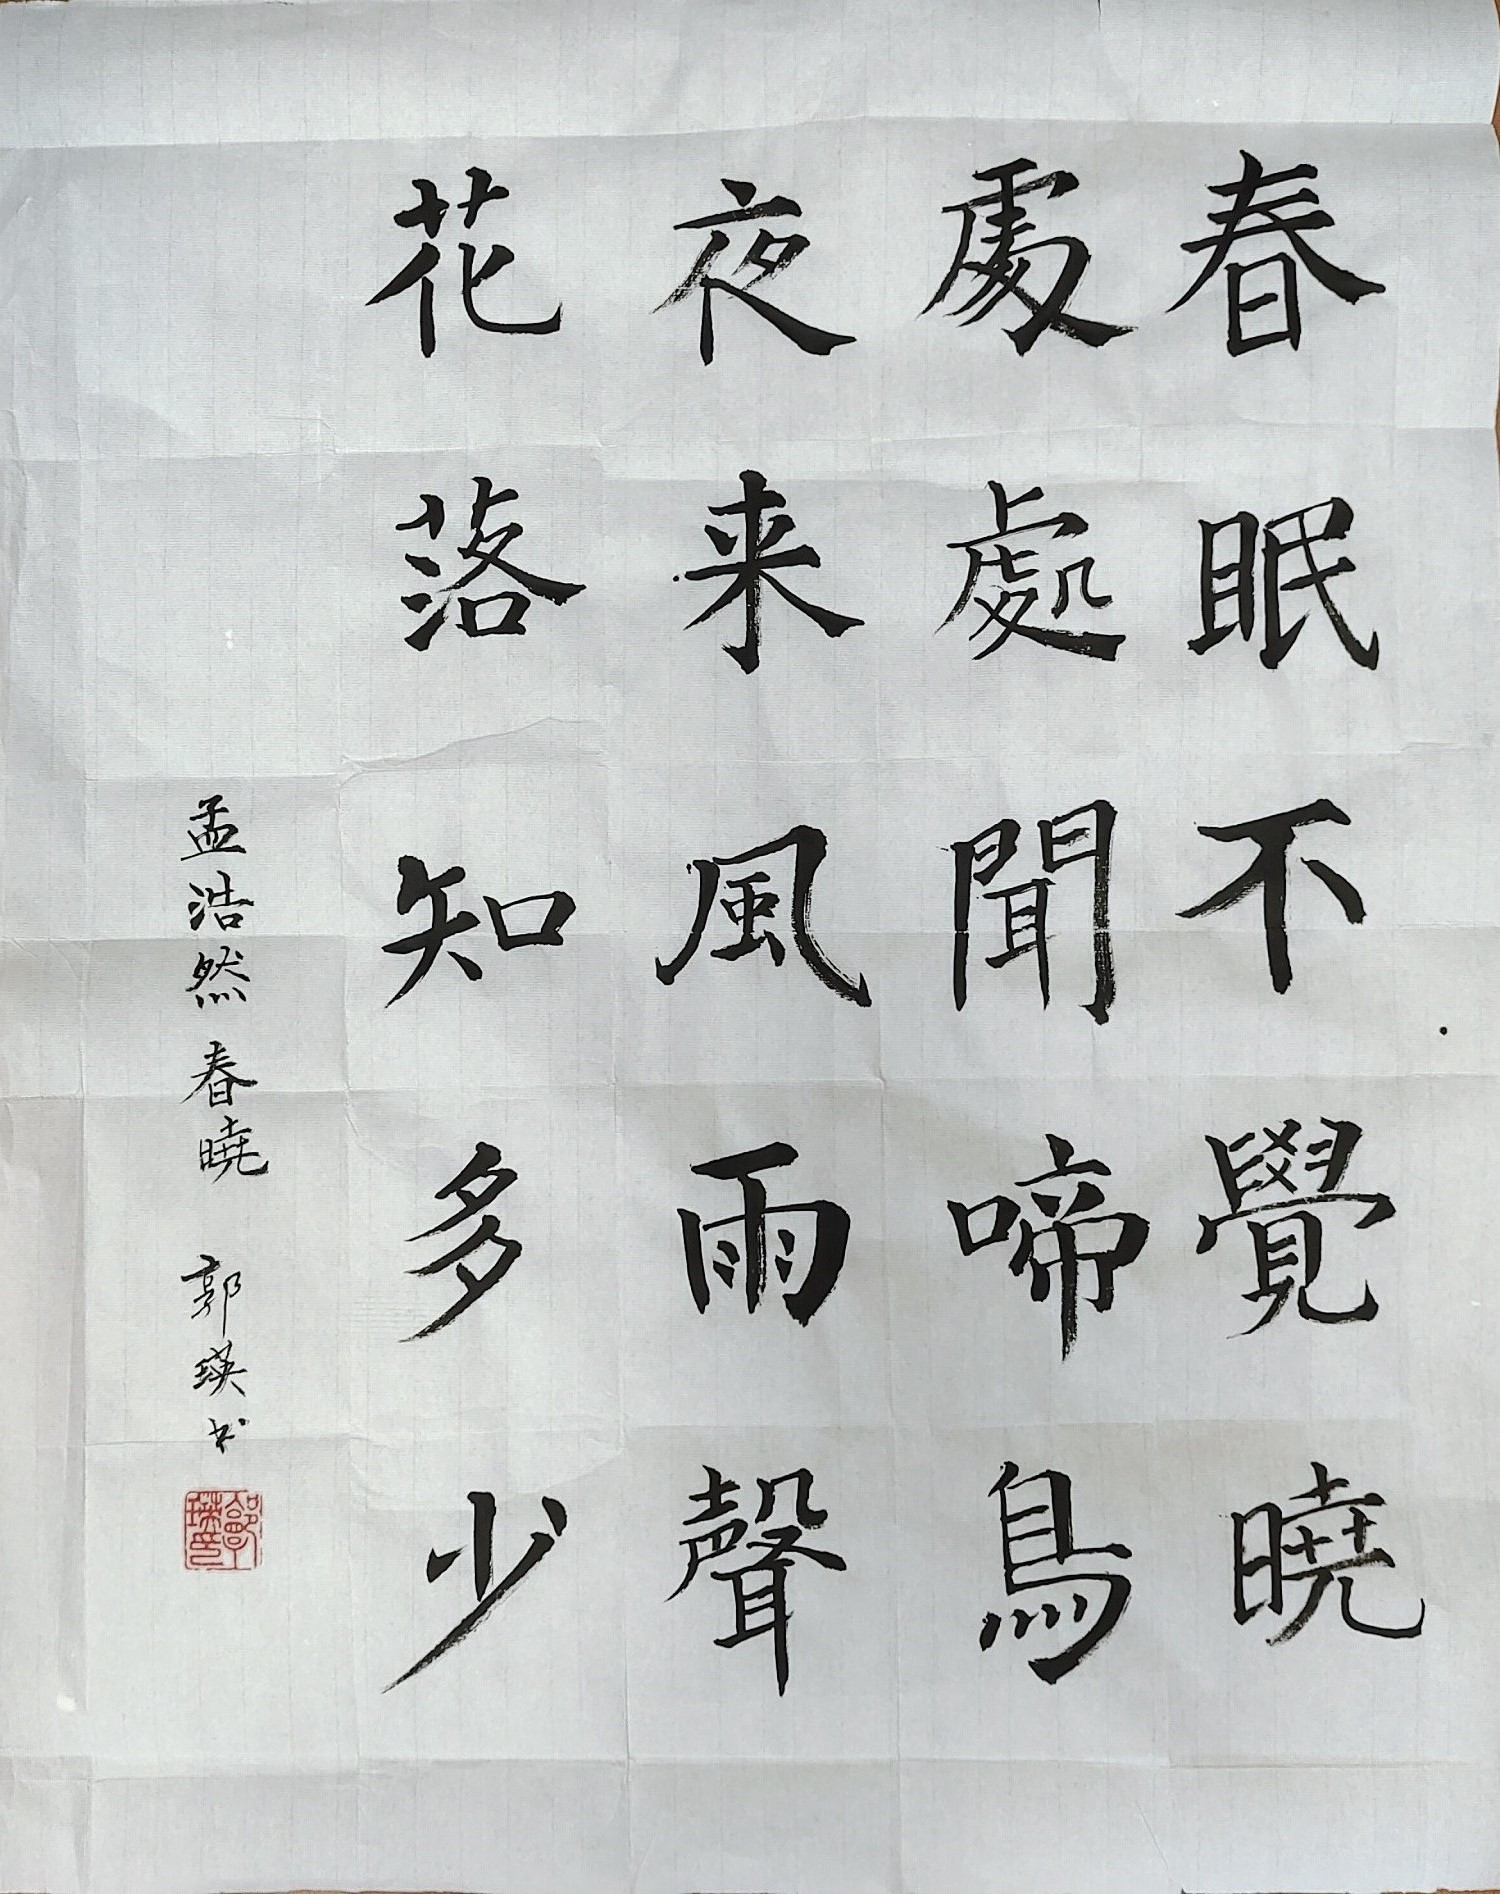 春眠不覺曉
處處聞啼鳥
夜来風雨聲
花落知多少
孟浩然 春曉 郭瑛书